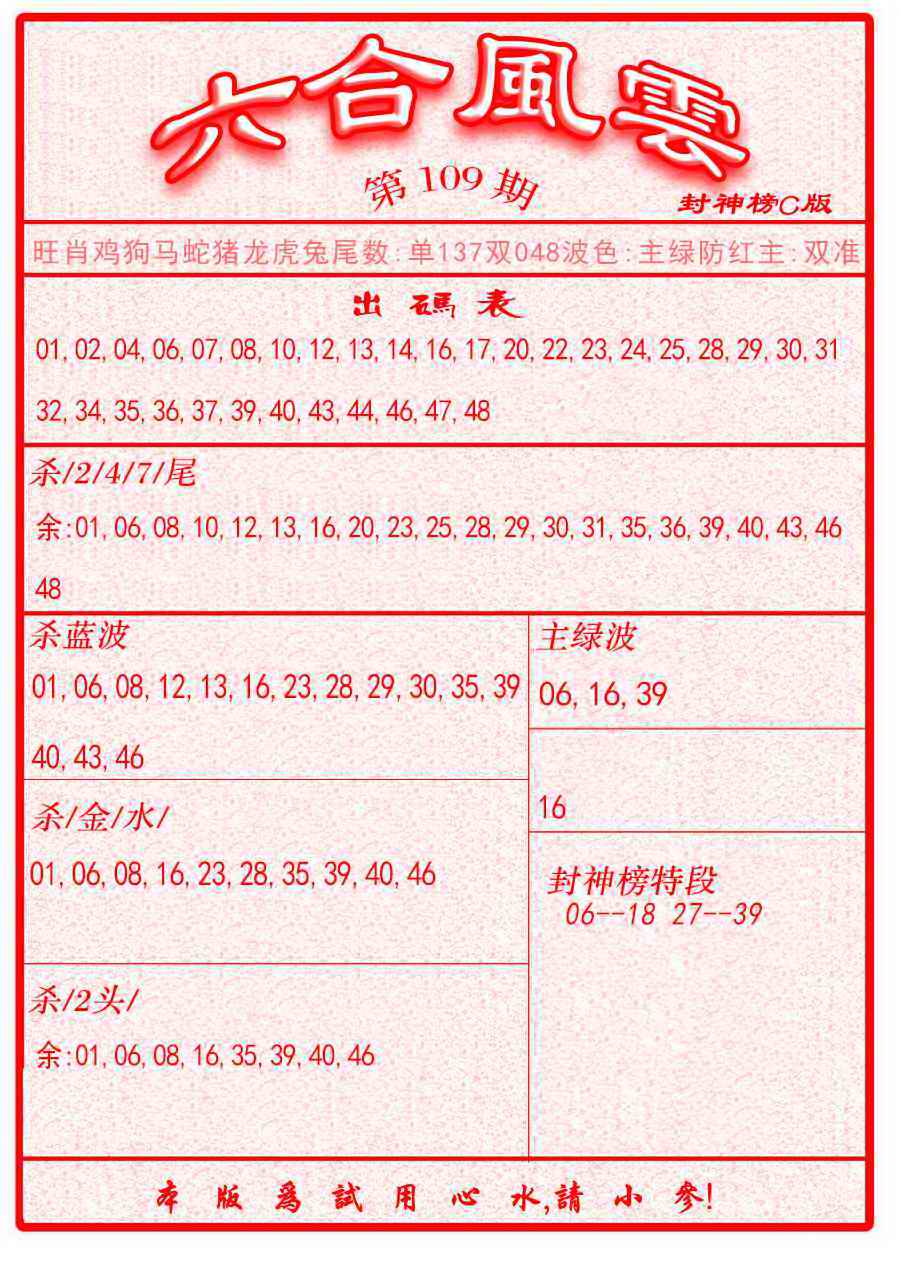 六合風雲
第109期
封神榜C版
旺肖鸡狗马蛇猪龙虎兔尾数:单137双048波色:主绿防红主:双准
出碼表
01,02,04,06,07,08,10,12,13,14,16,17,20,22,23,24,25,28,29,30,31
32,34,35,36,37,39,40,43,44,46,47,48
杀/2/4/7/尾
余:01,06,08,10,12,13,16,20,23,25,28,29,30,31,35,36,39,40,43,46
48
杀蓝波
01,06,08,12,13,16,23,28,29,30,35,39
40,43,46
主绿波
06,16,39
16
杀/金/水/
01,06,08,16,23,28,35,39,40,46
封神榜特段
06--18 27--39
杀/2头/
余:01,06,08,16,35,39,40,46
本版爲試用心水,請小參!